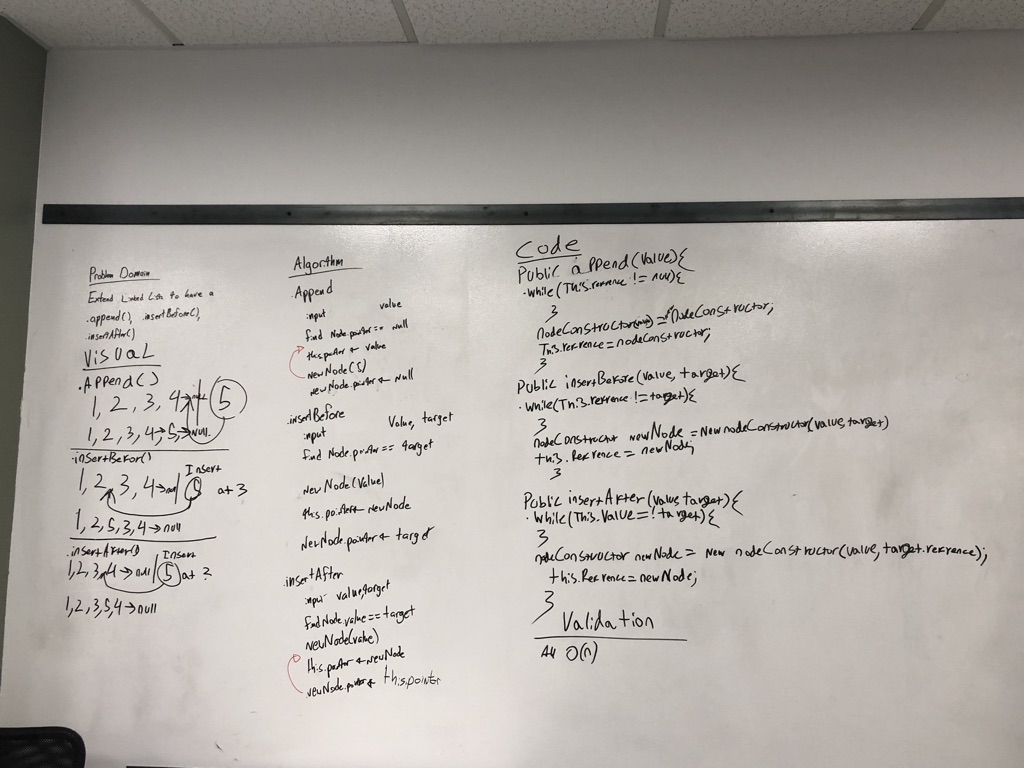 Problem Domain
Extend Linked Lists to have a
.append(), .insertBefore(),
.insertAfter()
Visual
.APPend()
1, 2, 3, 4→null 5
1, 2, 3, 4→5,→NULL
.insertBefor()
1, 2, 3, 4→null 5 Insert at 3
1, 2, 5, 3, 4→null
.insertAfter()
1, 2, 3, 4→null 5 Insert at ?
1, 2, 3, 5, 4→null
Algorithm
.Append
input value
find Node.pointer == null
this.pointer ← value
newNode(5)
newNode.pointer ← null
.insertBefore
input Value, target
find Node.pointer == target
new Node(value)
this.pointer← newNode
newNode.pointer ← target
.insertAfter
input value, target
find Node.value == target
newNode(value)
this.pointer ← newNode
newNode.pointer ← this.pointer
Code
Public append(value){
·while(This.refrence != null){
}
nodeConstructor = nodeConstructor;
This.refrence = nodeConstructor;
}
Public insertBefore(value, target){
·while(This.refrence != target){
}
nodeConstructor newNode = New nodeConstructor(value, target)
this.Refrence = newNode;
}
Public insertAfter(value, target){
·while(This.Value =! target){
}
nodeConstructor newNode = New nodeConstructor(value, target.refrence);
this.Refrence = newNode;
}
Validation
All O(n)